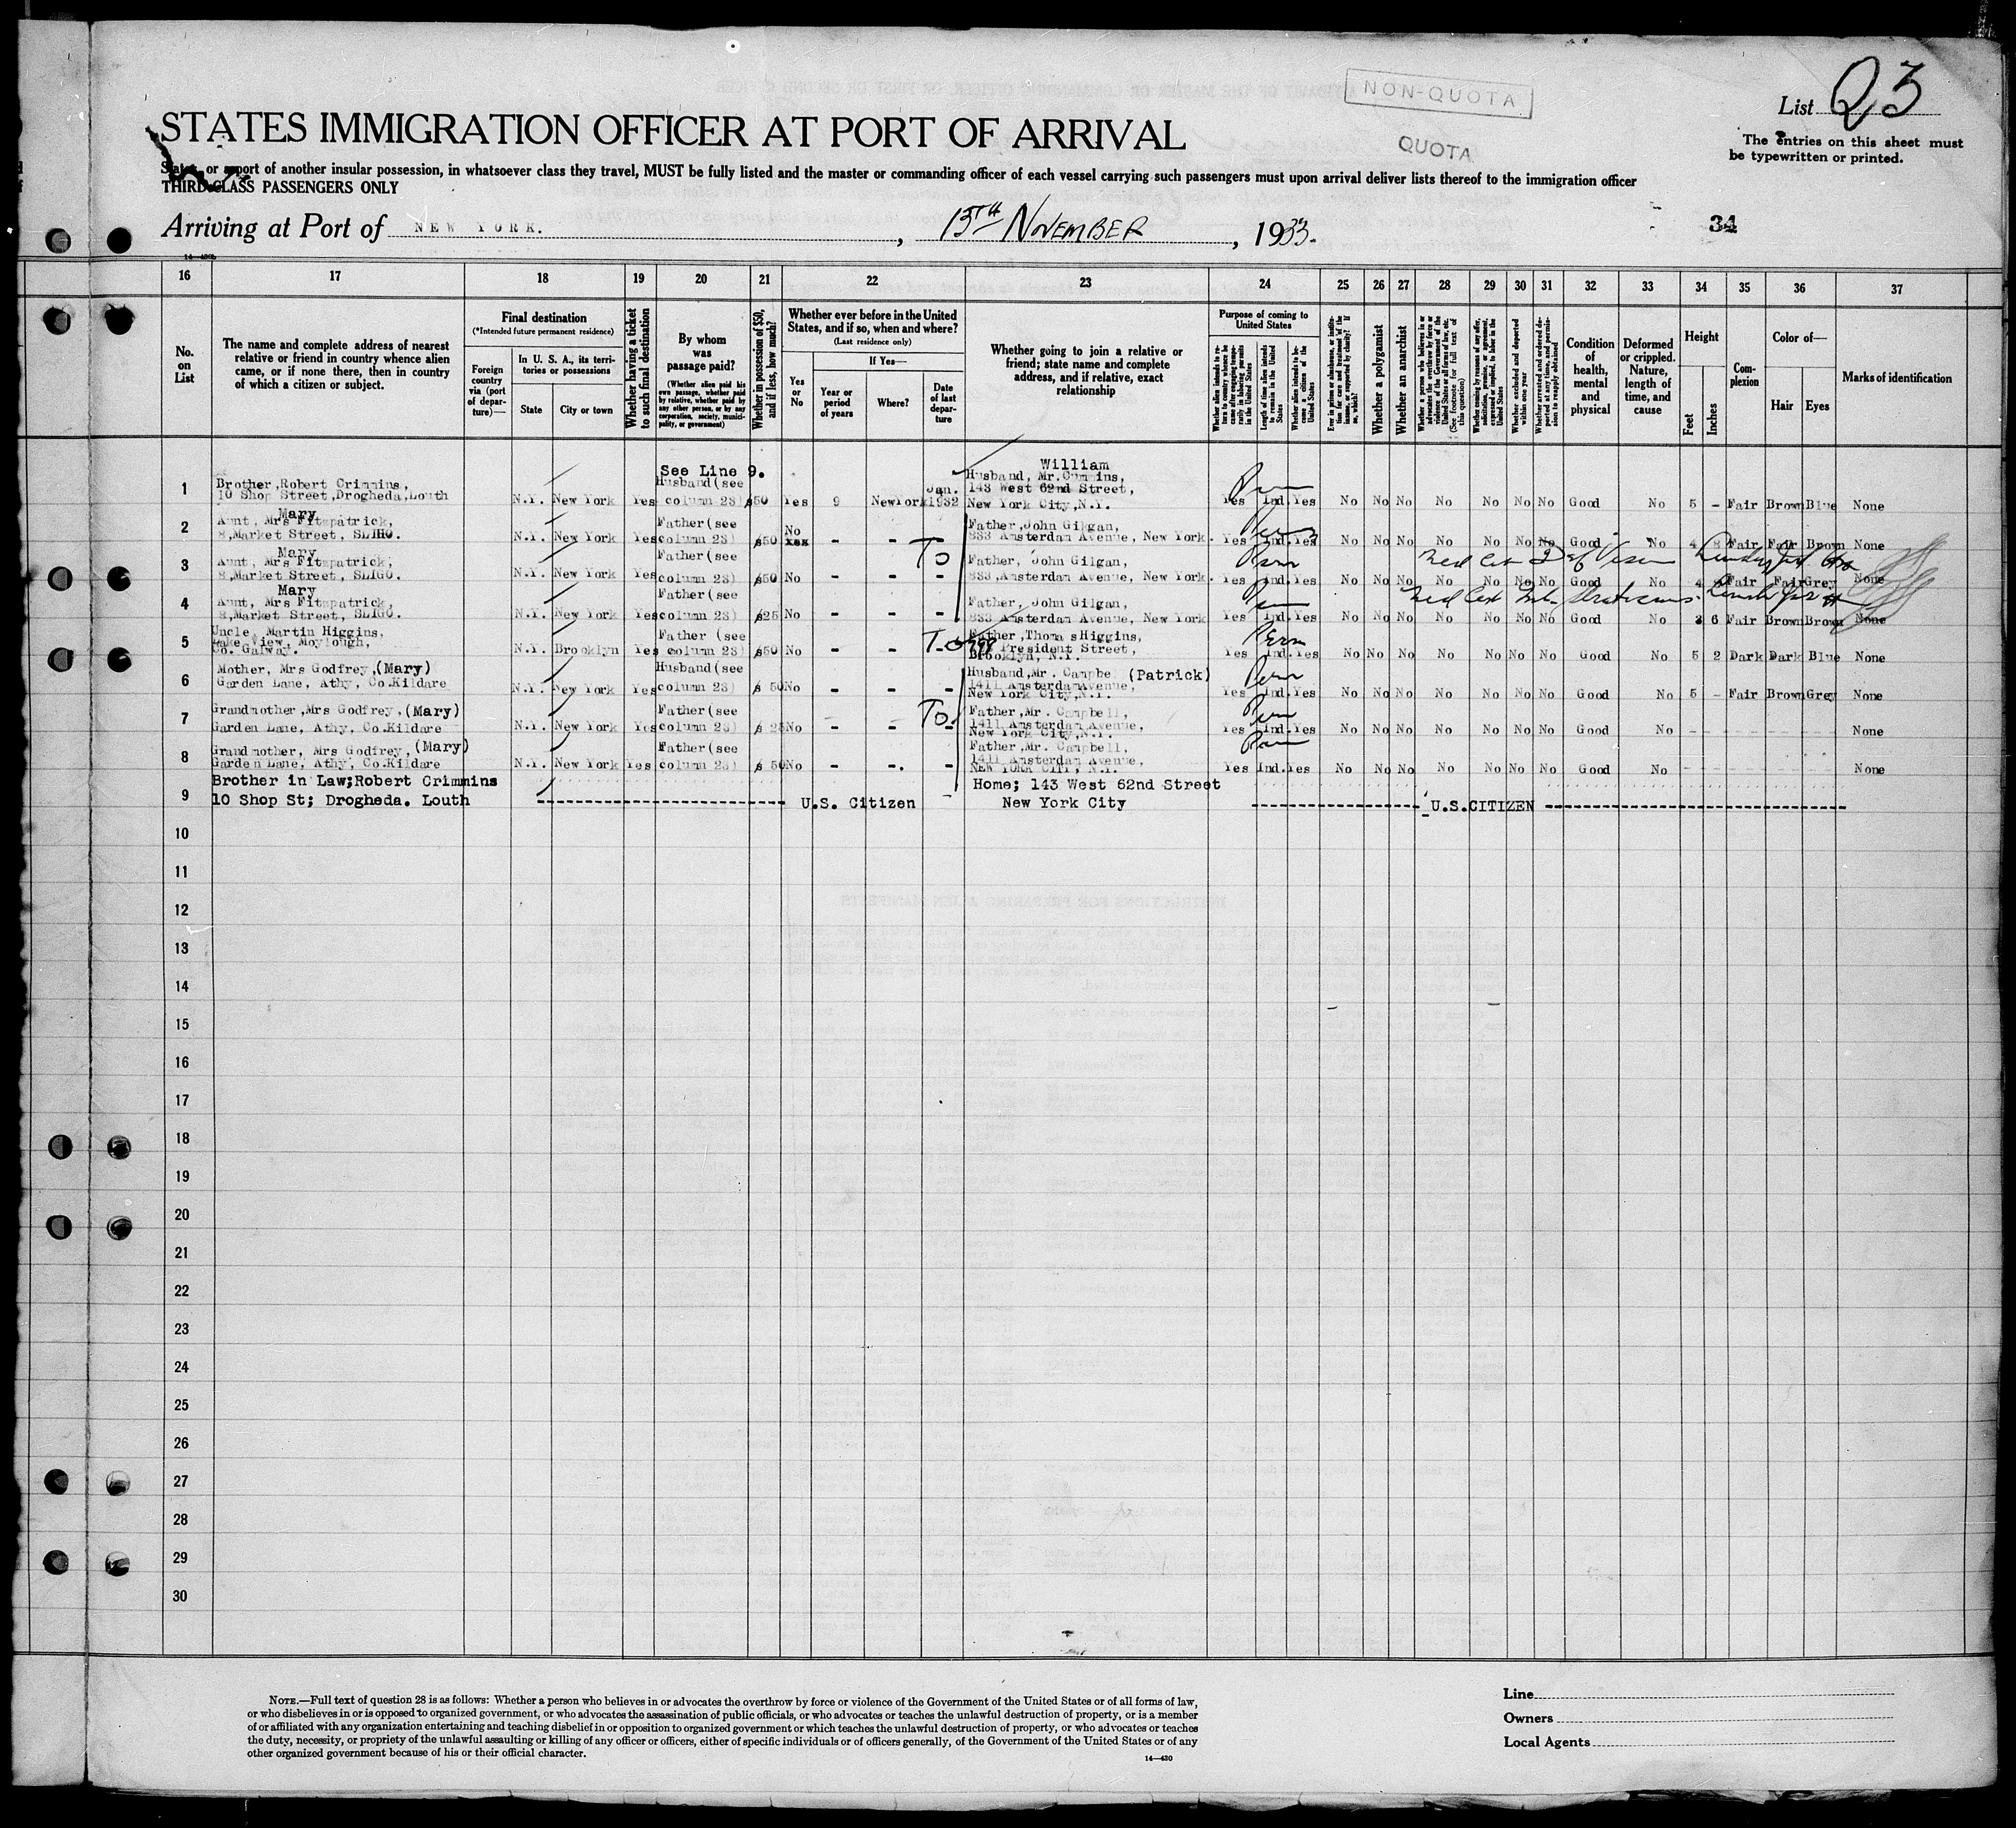 NON-QUOTA
QUOTA
List 23
The entries on this sheet must
be typewritten or printed.
STATES IMMIGRATION OFFICER AT PORT OF ARRIVAL
or a port of another insular possession, in whatsoever class they travel, MUST be fully listed and the master or commanding officer of each vessel carrying such passengers must upon arrival deliver lists thereof to the immigration officer
THIRD-CLASS PASSENGERS ONLY
Arriving at Port of NEW YORK. , 13TH NOVEMBER , 1933.
34
16 17 18 19 20 21 22 23 24 25 26 27 28 29 30 31 32 33 34 35 36 37
No. on List
The name and complete address of nearest
relative or friend in country whence alien
came, or if none there, then in country
of which a citizen or subject.
Final destination
(*Intended future permanent residence)
Foreign country via (port of departure)—
In U. S. A., its territories or possessions
State
City or town
Whether having a ticket to such final destination
By whom was passage paid?
(Whether alien paid his own passage, whether paid by relative, whether paid by any other person, or by any corporation, society, municipality, or government)
Whether in possession of $50, and if less, how much?
Whether ever before in the United States, and if so, when and where?
(Last residence only)
Yes or No
If Yes—
Year or period of years
Where?
Date of last departure
Whether going to join a relative or
friend; state name and complete
address, and if relative, exact
relationship
Purpose of coming to United States
Whether alien intends to return to country whence he came after engaging temporarily in laboring pursuits in the United States
Length of time alien intends to remain in the United States
Whether alien intends to become a citizen of the United States
Ever in prison or almshouse, or institution for care and treatment of the insane, or supported by charity? If so, which?
Whether a polygamist
Whether an anarchist
Whether a person who believes in or advocates the overthrow by force or violence of the Government of the United States or all forms of law, etc. (See footnote for full text of this question)
Whether coming by reason of any offer, solicitation, promise, or agreement, expressed or implied, to labor in the United States
Whether excluded and deported within one year
Whether arrested and ordered deported at any time, and permission to reapply obtained
Condition of health, mental and physical
Deformed or crippled. Nature, length of time, and cause
Height
Feet
Inches
Complexion
Color of—
Hair
Eyes
Marks of identification
See Line 9.
William
1 Brother, Robert Crimmins, Husband (see Husband, Mr. Cummins,
10 Shop Street, Drogheda, Louth N.Y. New York Yes column 23) $50 Yes 9 NewYork Jan. 1932 143 West 62nd Street,
New York City, N.Y. Yes Ind. Yes No No No No No No No Good No 5 - Fair Brown Blue None
Perm
Mary
2 Aunt, Mrs Fitzpatrick, Father (see No Father, John Gilgan,
8, Market Street, SLIGO. N.Y. New York Yes column 23) $50 Yes - - - 833 Amsterdam Avenue, New York. Yes Ind. Yes No No No No No No No Good No 4 8 Fair Fair Brown None
Mary
3 Aunt, Mrs Fitzpatrick, Father (see To Father, John Gilgan, Perm
8, Market Street, SLIGO. N.Y. New York Yes column 23) $50 No - - - 833, Amsterdam Avenue, New York. Yes Ind. Yes No No No No No No No Good No 4 Fair Fair Grey None
Mary
4 Aunt, Mrs Fitzpatrick, Father (see Father, John Gilgan,
8, Market Street, SLIGO. N.Y. New York Yes column 23) $25 No - - - 833 Amsterdam Avenue, New York Yes Ind. Yes No No No No No No No Good No 3 6 Fair Brown Brown None
5 Uncle, Martin Higgins, Father (see To Father, Thomas Higgins, Perm
Lake View, Moylough,
Co. Galway. N.Y. Brooklyn Yes column 23) $50 No - - - President Street,
Brooklyn, N.Y. Yes Ind. Yes No No No No No No No Good No 5 2 Dark Dark Blue None
6 Mother, Mrs Godfrey, (Mary) Husband (see Husband, Mr. Campbel (Patrick) Perm
Garden Lane, Athy, Co. Kildare N.Y. New York Yes column 23) $ 50 No - - - 1411 Amsterdam Avenue,
New York City, N.Y. Yes Ind. Yes No No No No No No No Good No 5 - Fair Brown Grey None
7 Grandmother, Mrs Godfrey, (Mary) Father (see To Father, Mr. Campbell, Perm
Garden Lane, Athy, Co. Kildare N.Y. New York Yes column 23) $ 25 No - - - 1411 Amsterdam Avenue,
New York City, N.Y. Yes Ind. Yes No No No No No No No Good No None
8 Grandmother, Mrs Godfrey, (Mary) Father (see Father, Mr. Campbell, Perm
Garden Lane, Athy, Co. Kildare N.Y. New York Yes column 23) $ 50 No - - - 1411 Amsterdam Avenue,
NEW YORK CITY, N.Y. Yes Ind. Yes No No No No No No No Good No None
9 Brother in Law; Robert Crimmins Home; 143 West 62nd Street
10 Shop St; Drogheda. Louth U.S. Citizen New York City U.S.CITIZEN
10
11
12
13
14
15
16
17
18
19
20
21
22
23
24
25
26
27
28
29
30
NOTE.—Full text of question 28 is as follows: Whether a person who believes in or advocates the overthrow by force or violence of the Government of the United States or of all forms of law,
or who disbelieves in or is opposed to organized government, or who advocates the assassination of public officials, or who advocates or teaches the unlawful destruction of property, or is a member
of or affiliated with any organization entertaining and teaching disbelief in or opposition to organized government or which teaches the unlawful destruction of property, or who advocates or teaches
the duty, necessity, or propriety of the unlawful assaulting or killing of any officer or officers, either of specific individuals or of officers generally, of the Government of the United States or of any
other organized government because of his or their official character.
14—430
Line
Owners
Local Agents